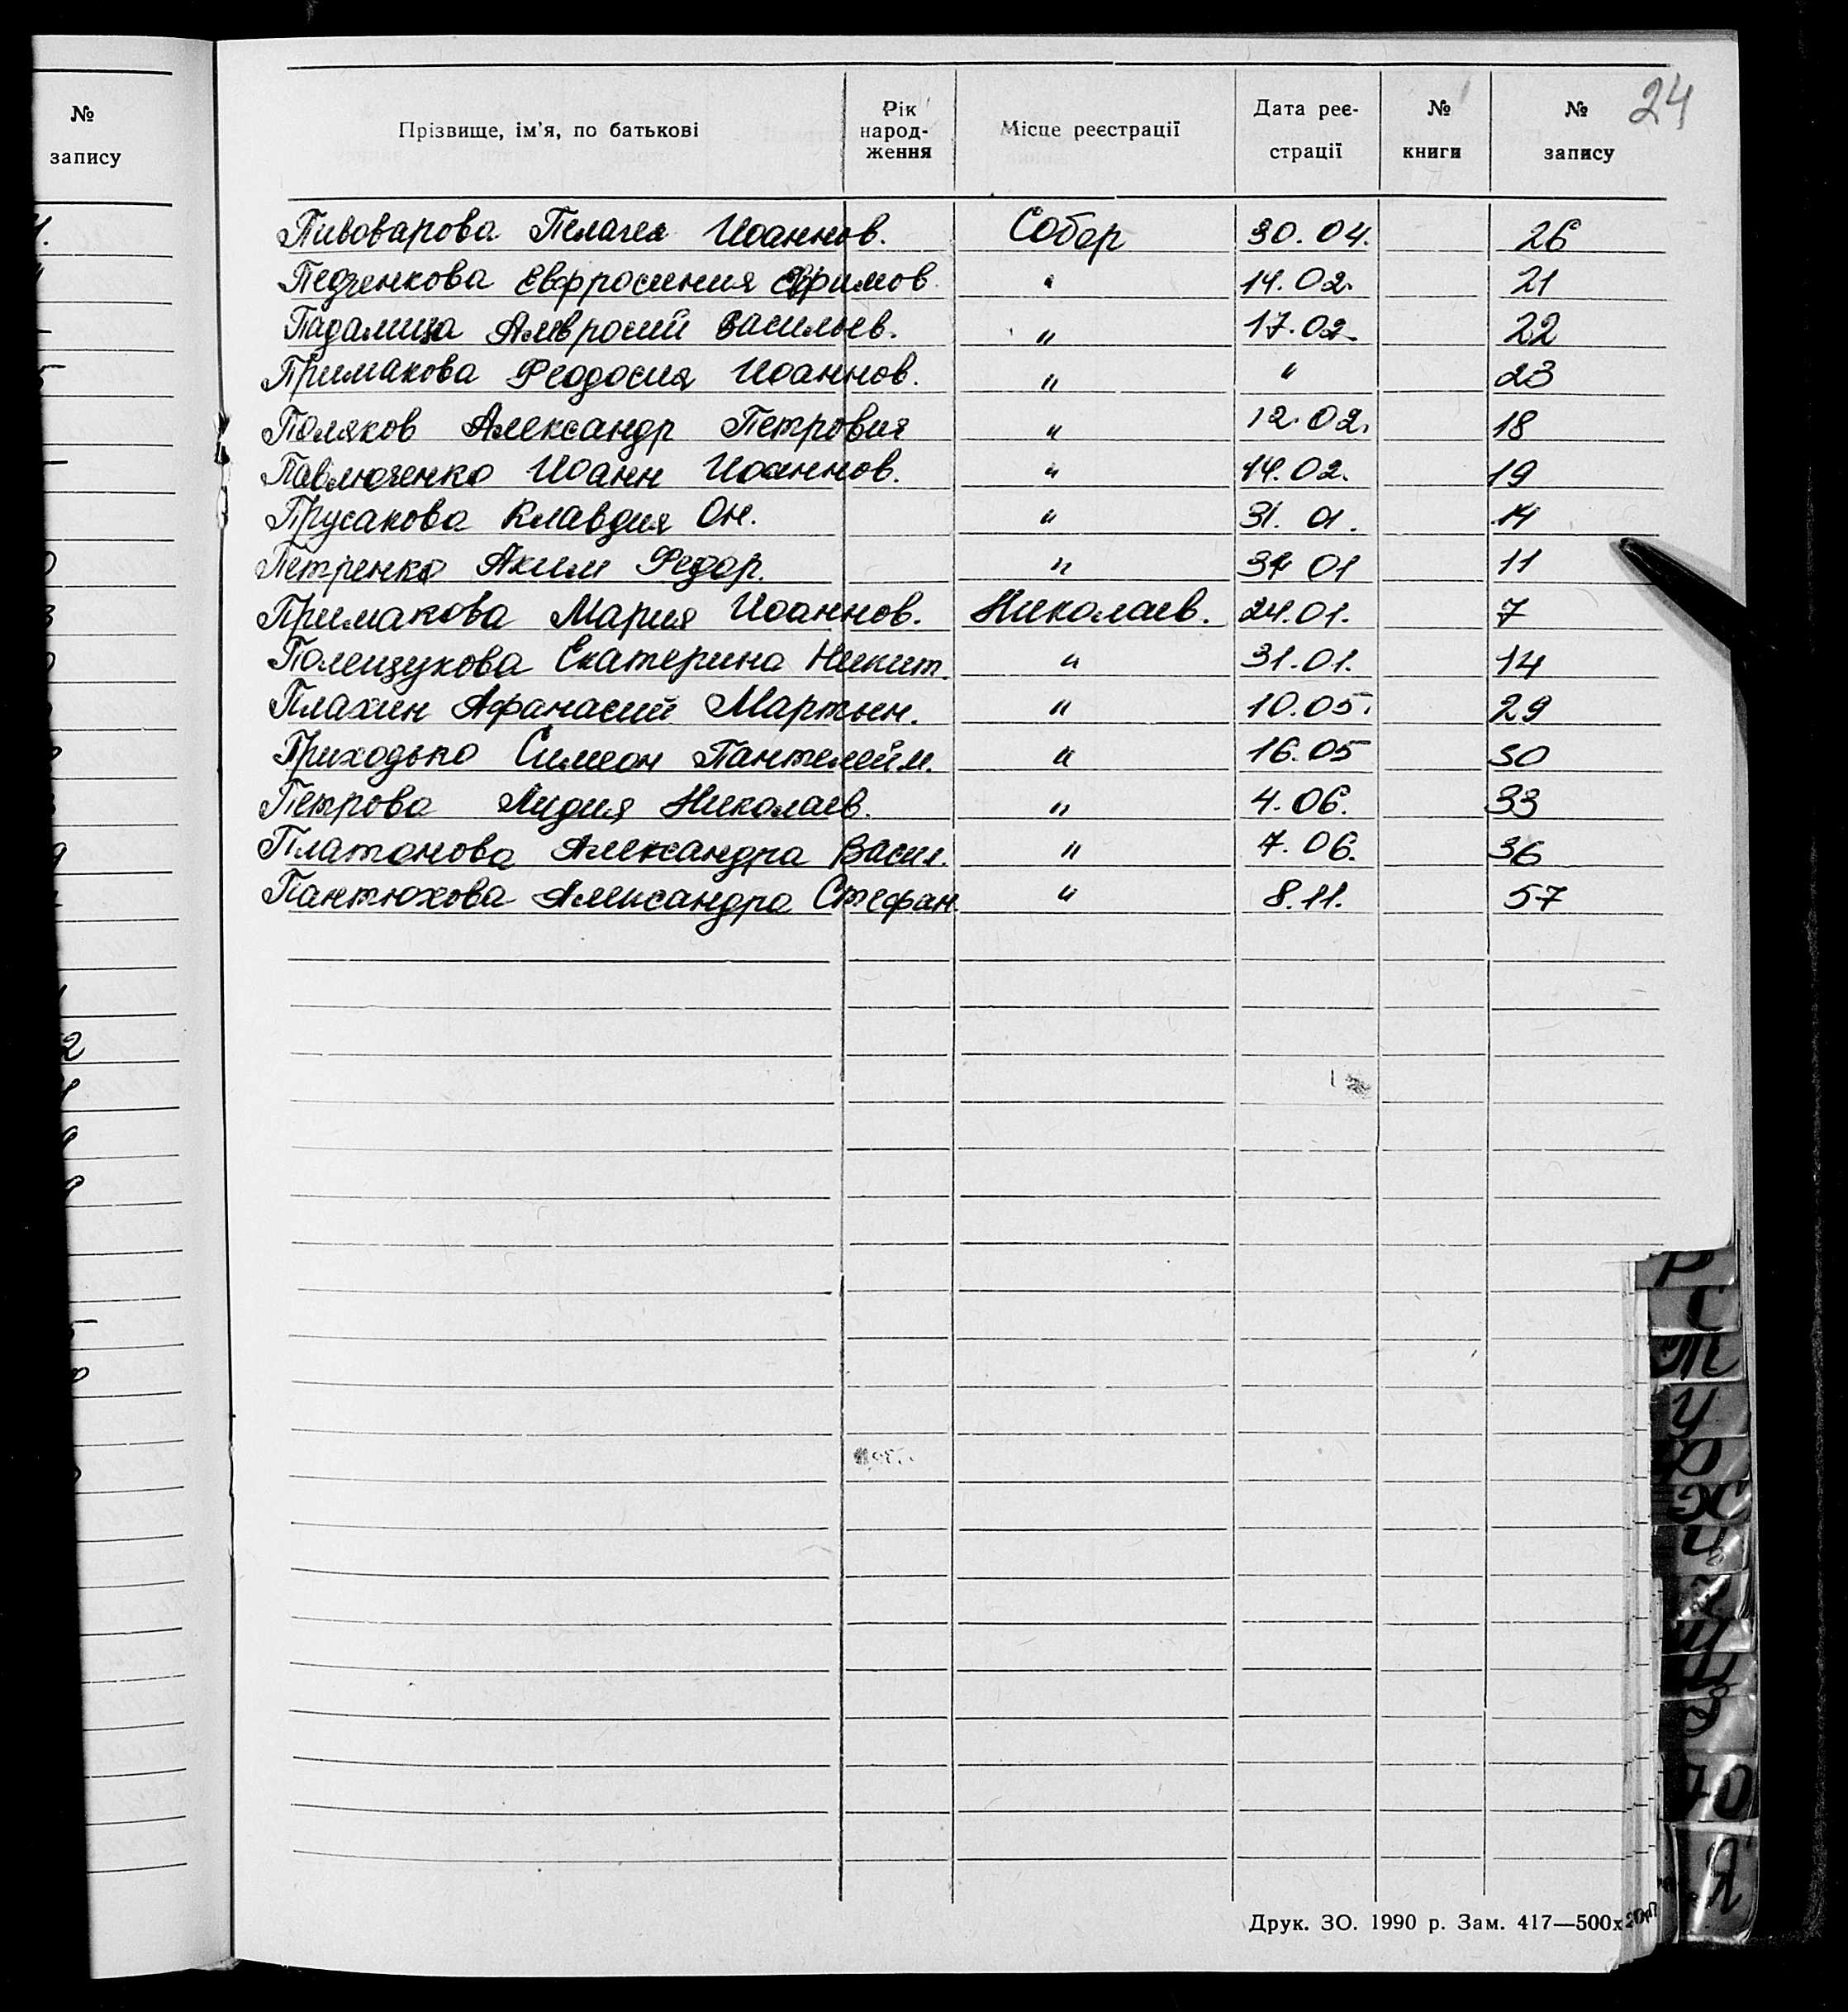 24
№ запису
Прізвище, ім'я, по батькові Рік народ-ження Місце реєстрації Дата реє-страції № книги № запису
Пивоварова Пелагея Иоаннов. Собор 30.04. 26
Педченкова Евфросиния Ефримов " 14.02. 21
Падалица Амвросий Васильев. " 17.02. 22
Примакова Феодосия Иоаннов. " " 23
Поляков Александр Петрович " 12.02. 18
Павлюченко Иоанн Иоаннов. " 14.02. 19
Прусакова Клавдия Он. " 31.01. 14
Петренко Аким Федор. " 01 11
Примакова Мария Иоаннов. Николаев. 24.01. 7
Полещукова Екатерина Никит. " 31.01. 14
Плахин Афанасий Мартын. " 10.05. 29
Приходько Симеон Пантелейм. " 16.05 30
Петрова Лидия Николаев. " 4.06. 33
Платонова Александра Васил. " 7.06. 36
Пантюхова Александра Стефан. " 8.11. 57
Р
С
Т
У
Ф
Х
Ц
Ю
Я
Друк. ЗО. 1990 р. Зам. 417—500х